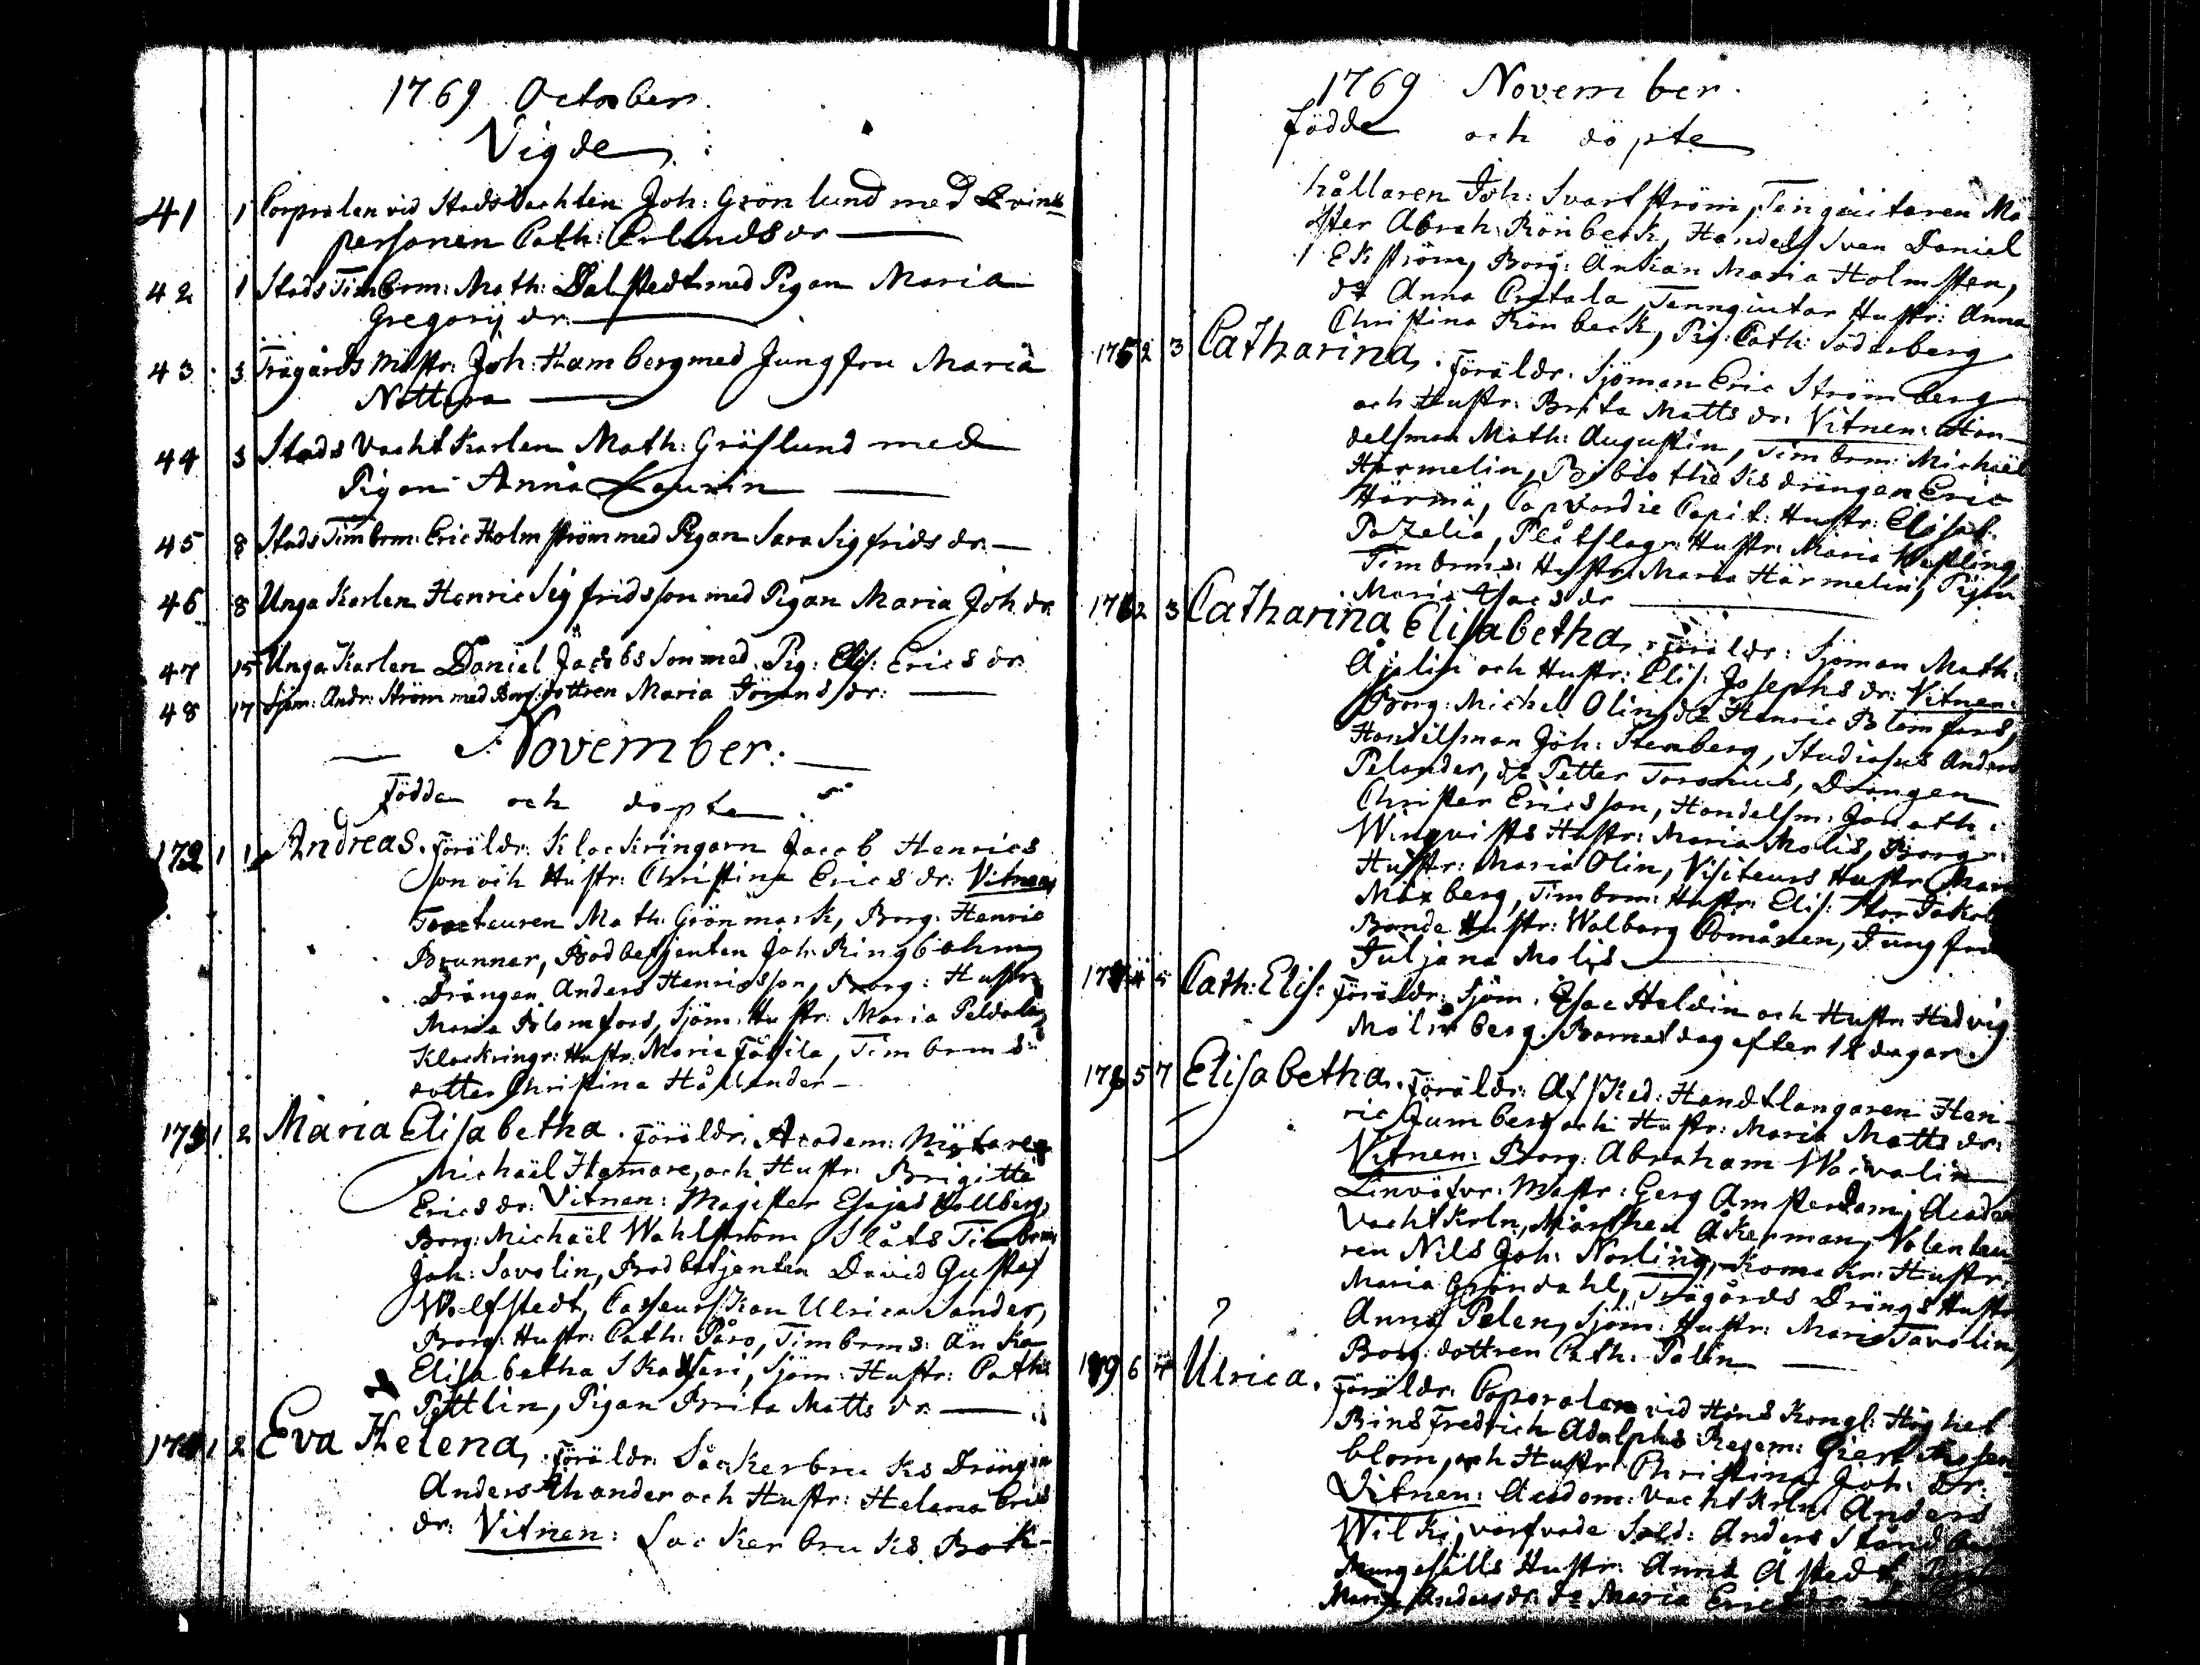 1769 October.
Vigde
41 1 Corpralen vid StadsVachten Joh: Grönlund med Qvins
personen Cath: Erlandsdr
42 1 StadsTimbrm: Math: Dalstedt med Pigan Maria
Gregorij dr.
43 3 Trägårds Mästr: Joh: Hamberg med Jungfru Maria
44 3 Stads Vacht Karlen Math: Gräslund med
Pigan Anna Laurin
45 8 StadsTimbrm: Eric Holmström med Pigan Sara Sigfrids dr.
46 8 Unga Karlen Henric Sigfridsson med Pigan Maria Joh. dr.
47 15 Unga Karlen Daniel Jacobsson med Pig: Elis: Erics dr.
48 17 Sjöm: Andr: Ström med Borg: dottren Maria Jörans dr:
November.
Födde och döpte
172 1 1 Andreas. Föräldr: Klockringarn Jacob Henrics
son och Hustr: Christina Erics dr: Vitnen
Tracteuren Math: Grönmark, Borg: Henric
Brunner, Bodbetjenten Joh: Ringbohm
Drängen Anders Henricsson, Borg: Hustr
Maria Blomfors, Sjöm: Hustr: Maria Peldan
Klockringr: Hustr: Maria, Timbrms
dotter Christina Håhlander
173 1 2 Maria Elisabetha. Föräldr: Academ:
Michaël Hamare, och Hustr: Brigitta
Erics dr: Vitnen: Magister Esajas Wallberg,
Borg: Michaël Wahlström, Slåts Timbrm
Joh: Savolin, Bodbetjenten David Gustaf
Wolfstedt, Ulrica Sander,
Borg: Hustr: Cath: Påro, Timbrms: Änka
Elisabetha, Sjöm: Hustr: Cath:
Pettlin, Pigan Brita Matts dr.
174 1 2 Eva Helena, Föräldr: Såckerbruks Drängen
Anders Thander och Hustr: Helena Erics
dr: Vitnen: Sockerbruks Bok-
1769 November.
Födde och döpte
hållaren Joh: Svartström, Tenngiutaren Mä
ster Abrah: Rönbeck, Handels Sven Daniel
Ekström, Borg: Änkan Maria Holmsten,
do Anna, Tenngiutar Hustr: Anna
Christina Rönbeck, Pig: Cath: Söderberg
175 2 3 Catharina. Föräldr: Sjöman Eric Strömberg
och Hustr: Brita Matts dr: Vitnen: Han-
delsman Math: Augustin, Timbrm: Michaël
Härmelin, Bibliotheks drängen Eric
Härmä, Copvardie Capit: Hustr: Elisab:
Pazelia, Plåtslagr: Hustr: Maria Westling
Timbrms: Hustr: Maria Härmelin, Pigan
Maria Isacs dr
176 2 3 Catharina Elisabetha, Föräldr: Sjöman Math:
Åjelin och Hustr: Elis: Josephs dr: Vitnen:
Borg: Michel Olin, do Henric Blomfors,
Handelsman Joh: Stenberg, Studiosus Anders
Pelander, do Petter Toronius, Drängen
Christer Ericsson, Handelsm: Jonath:
Winqvists Hustr: Maria Molis, Borgr:
Hustr: Maria Olin, Visiteurs Hustr: Maria
Mixberg, Timbrm: Hustr: Elis:
Bonde Hustr: Walborg Comånen, Jungfru
Juliana Molis
5 Cath: Elis: Föräldr: Sjöm: Isac Heldin och Hustr: Hedvig
Malmberg. Barnet dog efter 12 dagar.
178 5 7 Elisabetha. Föräldr: Afsked: Handtlangaren Hen-
ric Gumberg och Hustr: Maria Matts dr:
Vitnen: Borg: Abraham Waivalin
Linväfvr: Mästr: Gerg Amsterdam, Acade
Vachtkrln, Mårthen Åkerman, Volenteu
ren Nils Joh: Norling, Hustr:
Maria Gröndahl, Trägårds Drängs Hustr
Anna Pelen, Sjöm: Hustr: Maria Tavolin,
Borg: dottren Cath: Palin
?
179 6 7 Ulrica. Föräldr: Corporalen vid Hans Kongl: Höghet
Prins Fredrich Adolphs Regem: Giert Rosen-
blom, och Hustr: Christina Joh: Dr:
Vitnen: Academ: Vachtkrln: Anders
Wilki, värfvade Sold: Anders
Murgesälls Hustr: Anna Åstedt,
Maria Anders dr: do Maria Erics dr